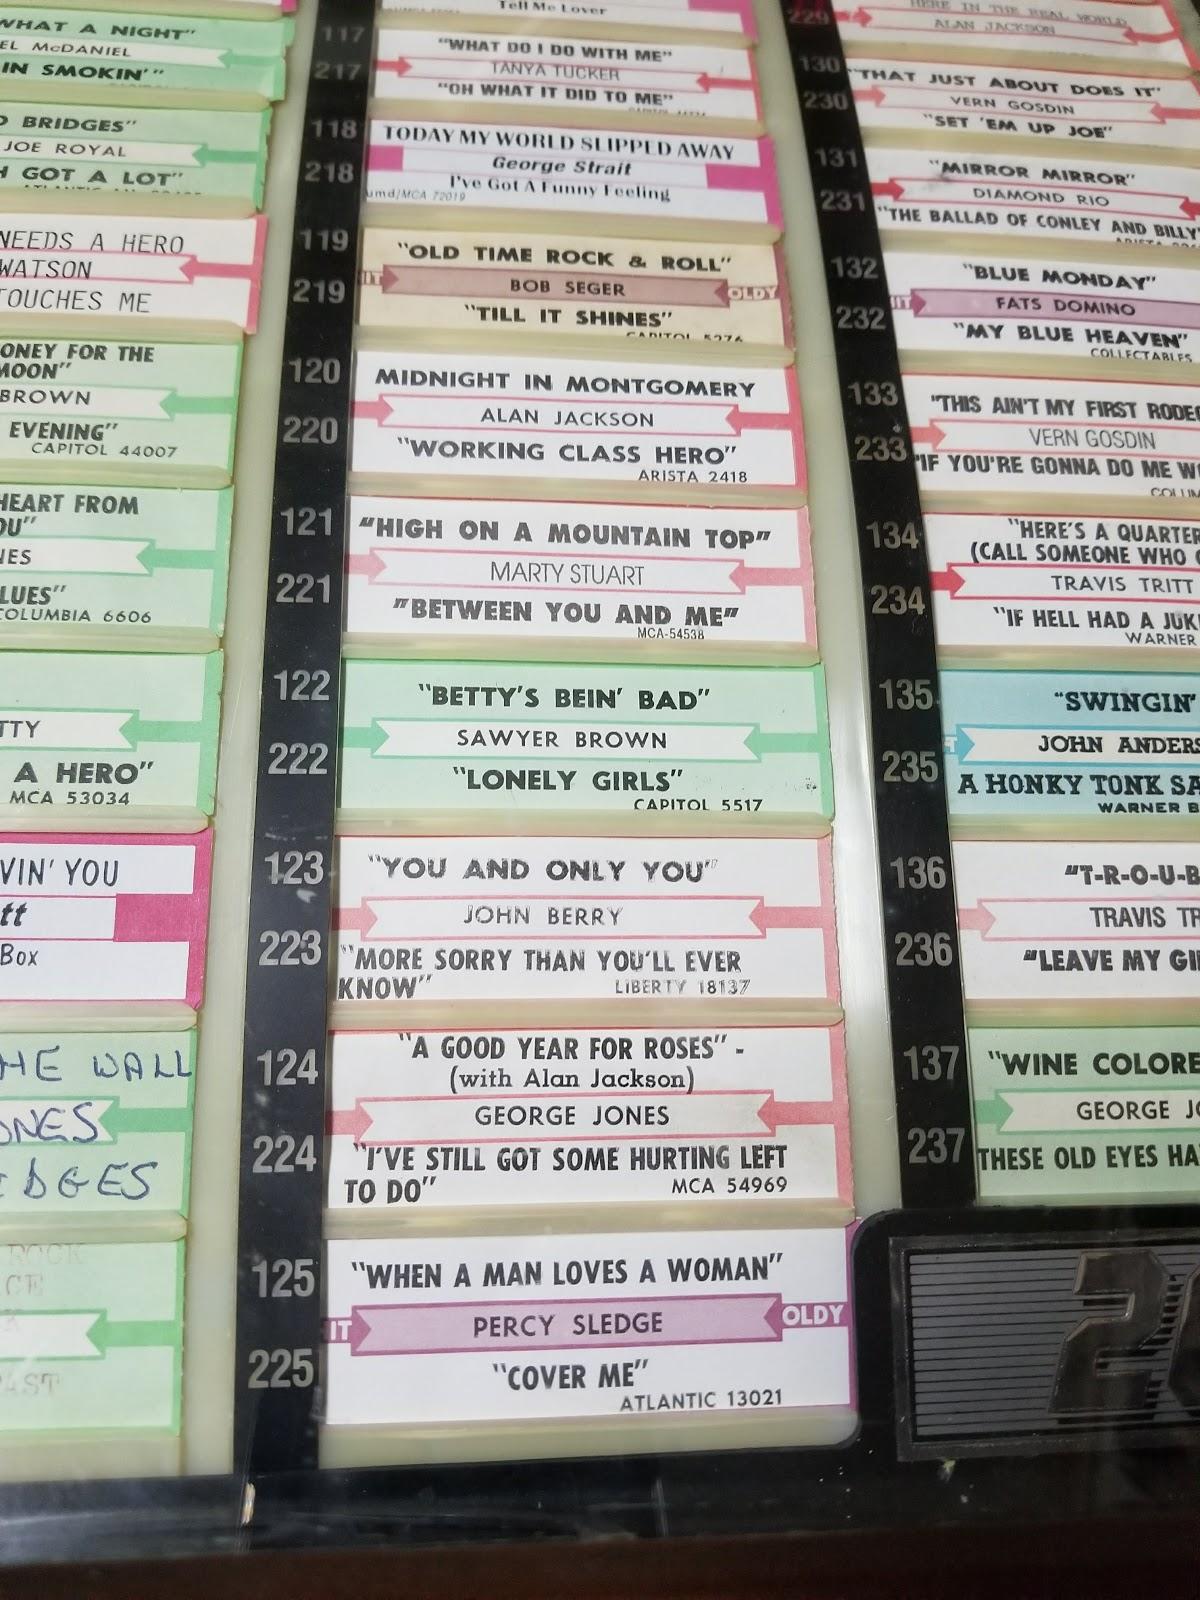 WHAT A NIGHT"
EL McDANIEL
IN SMOKIN'"
BRIDGES"
JOE ROYAL
GOT A LOT"
NEEDS A HERO
WATSON
TOUCHES ME
ONEY FOR THE
MOON"
BROWN
EVENING"
CAPITOL 44007
HEART FROM
OU"
NES
LUES"
COLUMBIA 6606
TTY
A HERO"
MCA 53034
VIN' YOU
tt
Box
HE WALL
ONES
IDGES
ROCK
CE
AST
Tell Me Lover
117
217
"WHAT DO I DO WITH ME"
TANYA TUCKER
"OH WHAT IT DID TO ME"
118
218
TODAY MY WORLD SLIPPED AWAY
George Strait
I've Got A Funny Feeling
umd/MCA 72019
119
219
"OLD TIME ROCK & ROLL"
IT BOB SEGER OLDY
"TILL IT SHINES"
CAPITOL 5276
120
220
MIDNIGHT IN MONTGOMERY
ALAN JACKSON
"WORKING CLASS HERO"
ARISTA 2418
121
221
"HIGH ON A MOUNTAIN TOP"
MARTY STUART
"BETWEEN YOU AND ME"
MCA-54538
122
222
"BETTY'S BEIN' BAD"
SAWYER BROWN
"LONELY GIRLS"
CAPITOL 5517
123
223
"YOU AND ONLY YOU"
JOHN BERRY
"MORE SORRY THAN YOU'LL EVER
KNOW" LIBERTY 18137
124
224
"A GOOD YEAR FOR ROSES" -
(with Alan Jackson)
GEORGE JONES
"I'VE STILL GOT SOME HURTING LEFT
TO DO" MCA 54969
125
225
"WHEN A MAN LOVES A WOMAN"
IT PERCY SLEDGE OLDY
"COVER ME"
ATLANTIC 13021
229
HERE IN THE REAL WORLD
ALAN JACKSON
130
230
"THAT JUST ABOUT DOES IT"
VERN GOSDIN
"SET 'EM UP JOE"
131
231
"MIRROR MIRROR"
DIAMOND RIO
"THE BALLAD OF CONLEY AND BILLY"
132
232
"BLUE MONDAY"
IT FATS DOMINO
"MY BLUE HEAVEN"
COLLECTABLES
133
233
"THIS AIN'T MY FIRST RODE
VERN GOSDIN
"IF YOU'RE GONNA DO ME W
COLUM
134
234
"HERE'S A QUARTER
(CALL SOMEONE WHO
TRAVIS TRITT
"IF HELL HAD A JUK
WARNER
135
235
"SWINGIN'
JOHN ANDERS
A HONKY TONK SA
WARNER B
136
236
"T-R-O-U-B
TRAVIS TR
"LEAVE MY GI
137
237
"WINE COLORE
GEORGE JO
THESE OLD EYES HA
20